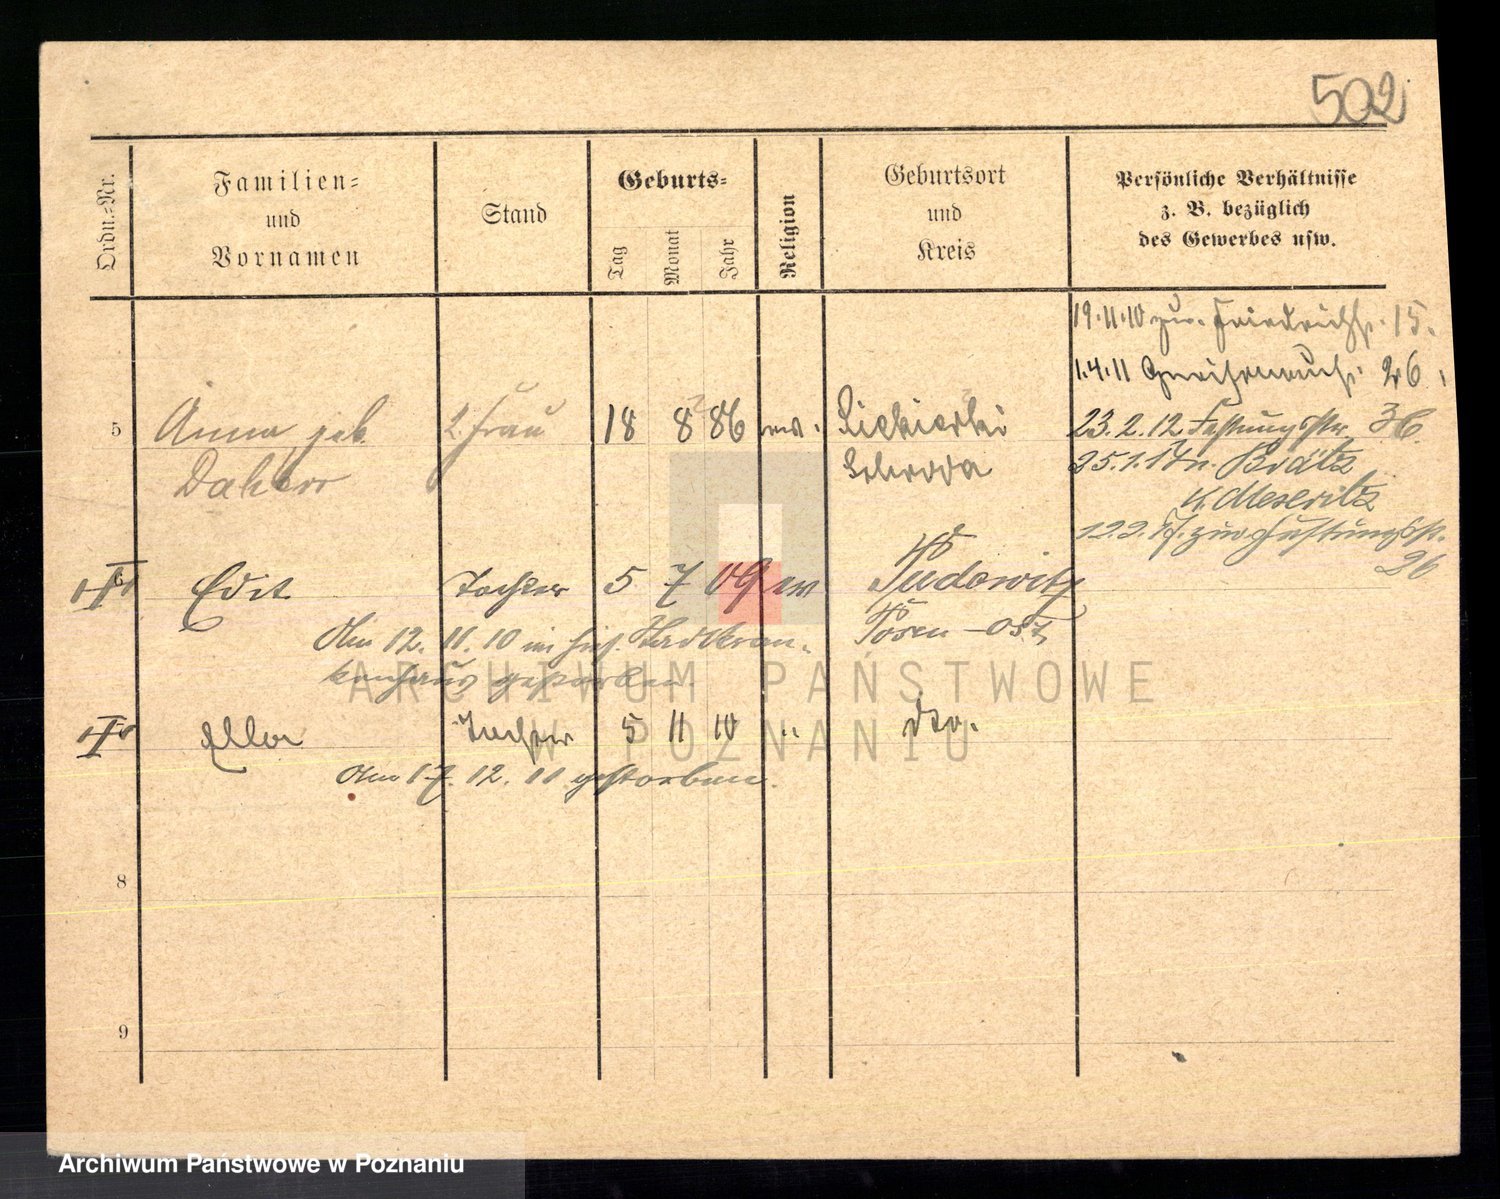 502
Ordn.-Nr.
Familien-
und
Vornamen
Stand
Geburts-
Tag
Monat
Jahr
Religion
Geburtsort
und
Kreis
Persönliche Verhältnisse
z. B. bezüglich
des Gewerbes usw.
19.11.10 zur. Friedrichstr. 15.
1.4.11 26.
23.2.12. Festungsstr. 36.
25.1.17 n. Brätz
K. Meseritz
12.2.17. zur Festungsstr.
26
5 Anna geb. 2. Frau 18 8 86 ev.
Daherr Schroda
6 Edit Tochter 5 7 09 ev Pudewitz
Am 12. 11. 10 im hies. Stadtkran- Posen-Ost
kenhaus gestorben.
Ella Tochter 5 11 10 " dto.
Am 17. 12. 11 gestorben.
8
9
ARCHIWUM PAŃSTWOWE
W POZNANIU
Archiwum Państwowe w Poznaniu